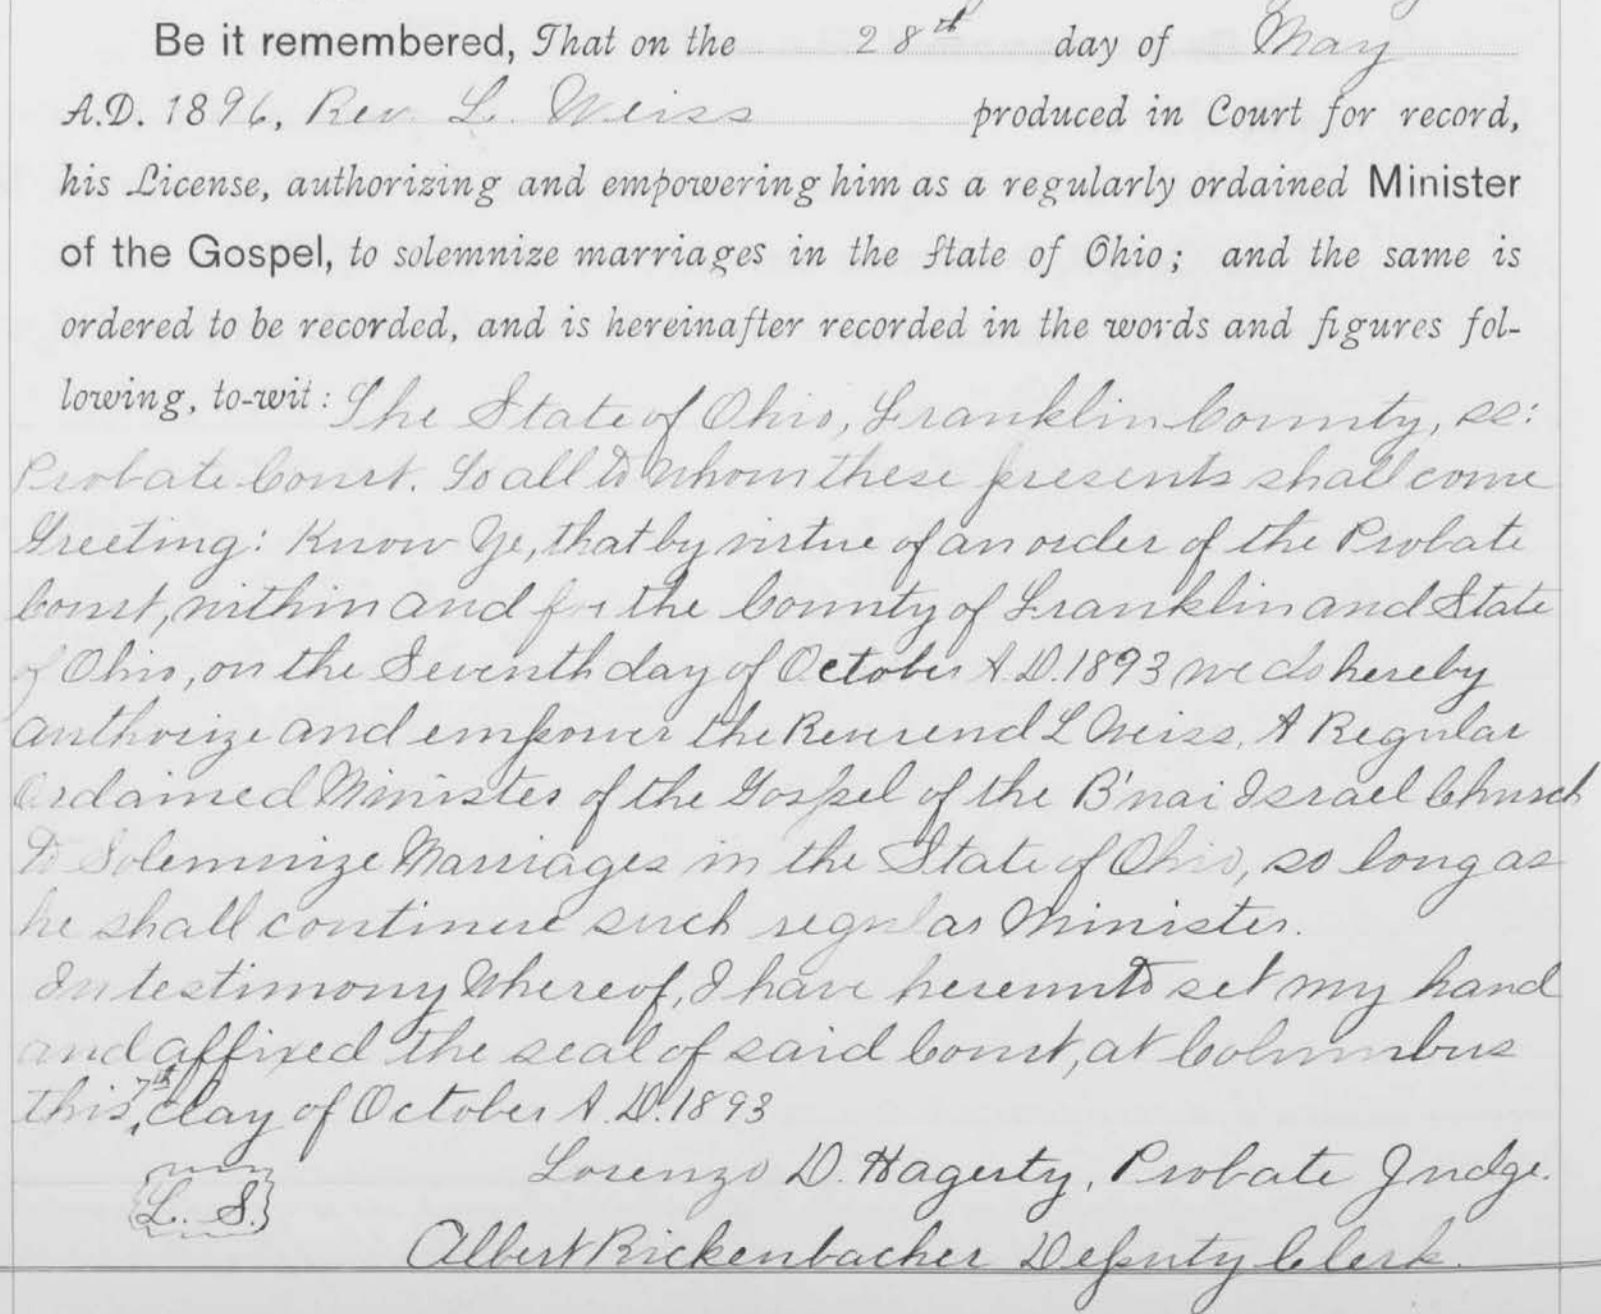 Be it remembered, That on the 28th day of May
A.D. 1896, Rev. L. Weiss produced in Court for record,
his License, authorizing and empowering him as a regularly ordained Minister
of the Gospel, to solemnize marriages in the State of Ohio; and the same is
ordered to be recorded, and is hereinafter recorded in the words and figures fol-
lowing, to-wit: The State of Ohio, Franklin County, ss:
Probate Court. To all to Whom these presents shall come
Greeting: Know Ye, that by virtue of an order of the Probate
Court, within and for the County of Franklin and State
of Ohio, on the Seventh day of October A.D. 1893 we do hereby
authorize and empower the Reverend L Weiss, A Regular
Ordained Minister of the Gospel of the B'nai Israel Church
To Solemnize Marriages in the State of Ohio, so long as
he shall continue such regular Minister.
In testimony Whereof, I have hereunto set my hand
and affixed the seal of said Court, at Columbus
this 7th day of October A.D. 1893
Lorenzo D. Hagerty, Probate Judge.
L. S.
Albert Rickenbacher Deputy Clerk.